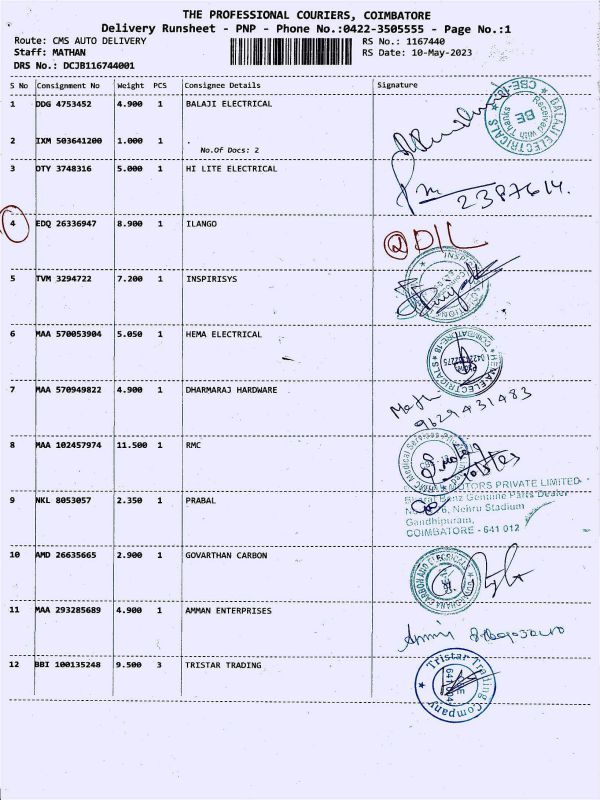 THE PROFESSIONAL COURIERS, COIMBATORE
Delivery Runsheet - PNP - Phone No.:0422-3505555 - Page No.:1
Route: CMS AUTO DELIVERY
RS No.: 1167440
Staff: MATHAN
RS Date: 10-May-2023
DRS No.: DCJB116744001
S No Consignment No Weight PCS Consignee Details Signature
1 DDG 4753452 4.900 1 BALAJI ELECTRICAL
BALAJI ELECTRICALS CBE-18
Received with Thanks
BE
2 IXM 503641200 1.000 1 .
No.Of Docs: 2
3 OTY 3748316 5.000 1 HI LITE ELECTRICAL
2387614.
4 EDQ 26336947 8.900 1 ILANGO
5 TVM 3294722 7.200 1 INSPIRISYS
6 MAA 570053904 5.050 1 HEMA ELECTRICAL
HEMA ELECTRICALS COIMBATORE-18
7 MAA 570949822 4.900 1 DHARMARAJ HARDWARE
9629431483
8 MAA 102457974 11.500 1 RMC
9 NKL 8053057 2.350 1 PRABAL
MOTORS PRIVATE LIMITED
Bharat Benz Genuine Parts Dealer
6, Nehru Stadium
Gandhipuram,
COIMBATORE - 641 012
10 AMD 26635665 2.900 1 GOVARTHAN CARBON
11 MAA 293285689 4.900 1 AMMAN ENTERPRISES
12 BBI 100135248 9.500 3 TRISTAR TRADING
Tristar Trading Company